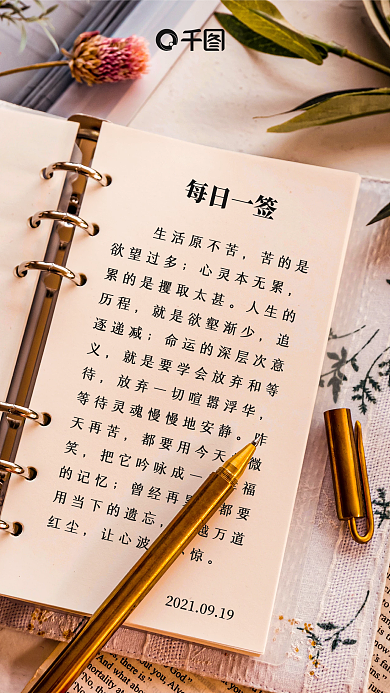 千图
每日一签
生活原不苦，苦的是
欲望过多；心灵本无累，
累的是攫取太甚。人生的
历程，就是欲壑渐少，追
逐递减；命运的深层次意
义，就是要学会放弃和等
待，放弃一切喧嚣浮华，
等待灵魂慢慢地安静。昨
天再苦，都要用今天 微
笑，把它吟咏成一 福
的记忆；曾经再 都要
用当下的遗忘， 越万道
红尘，让心波 惊。
2021.09.19
there is."
God."
But you, Alyo
And what
mortality
"No, th